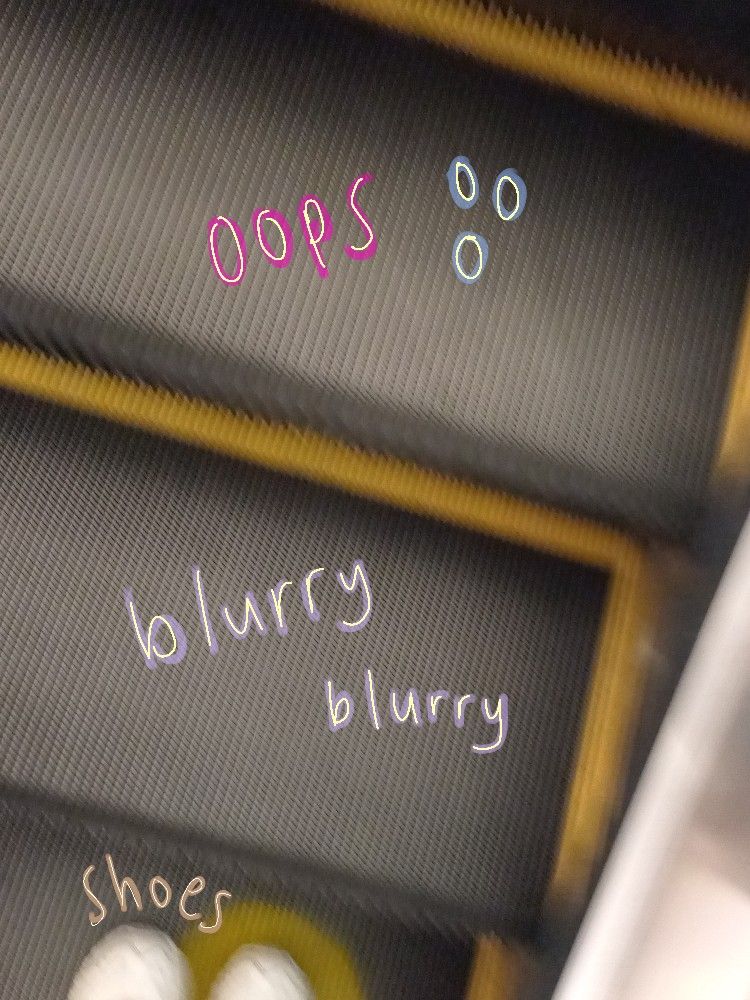 oops
blurry
blurry
shoes